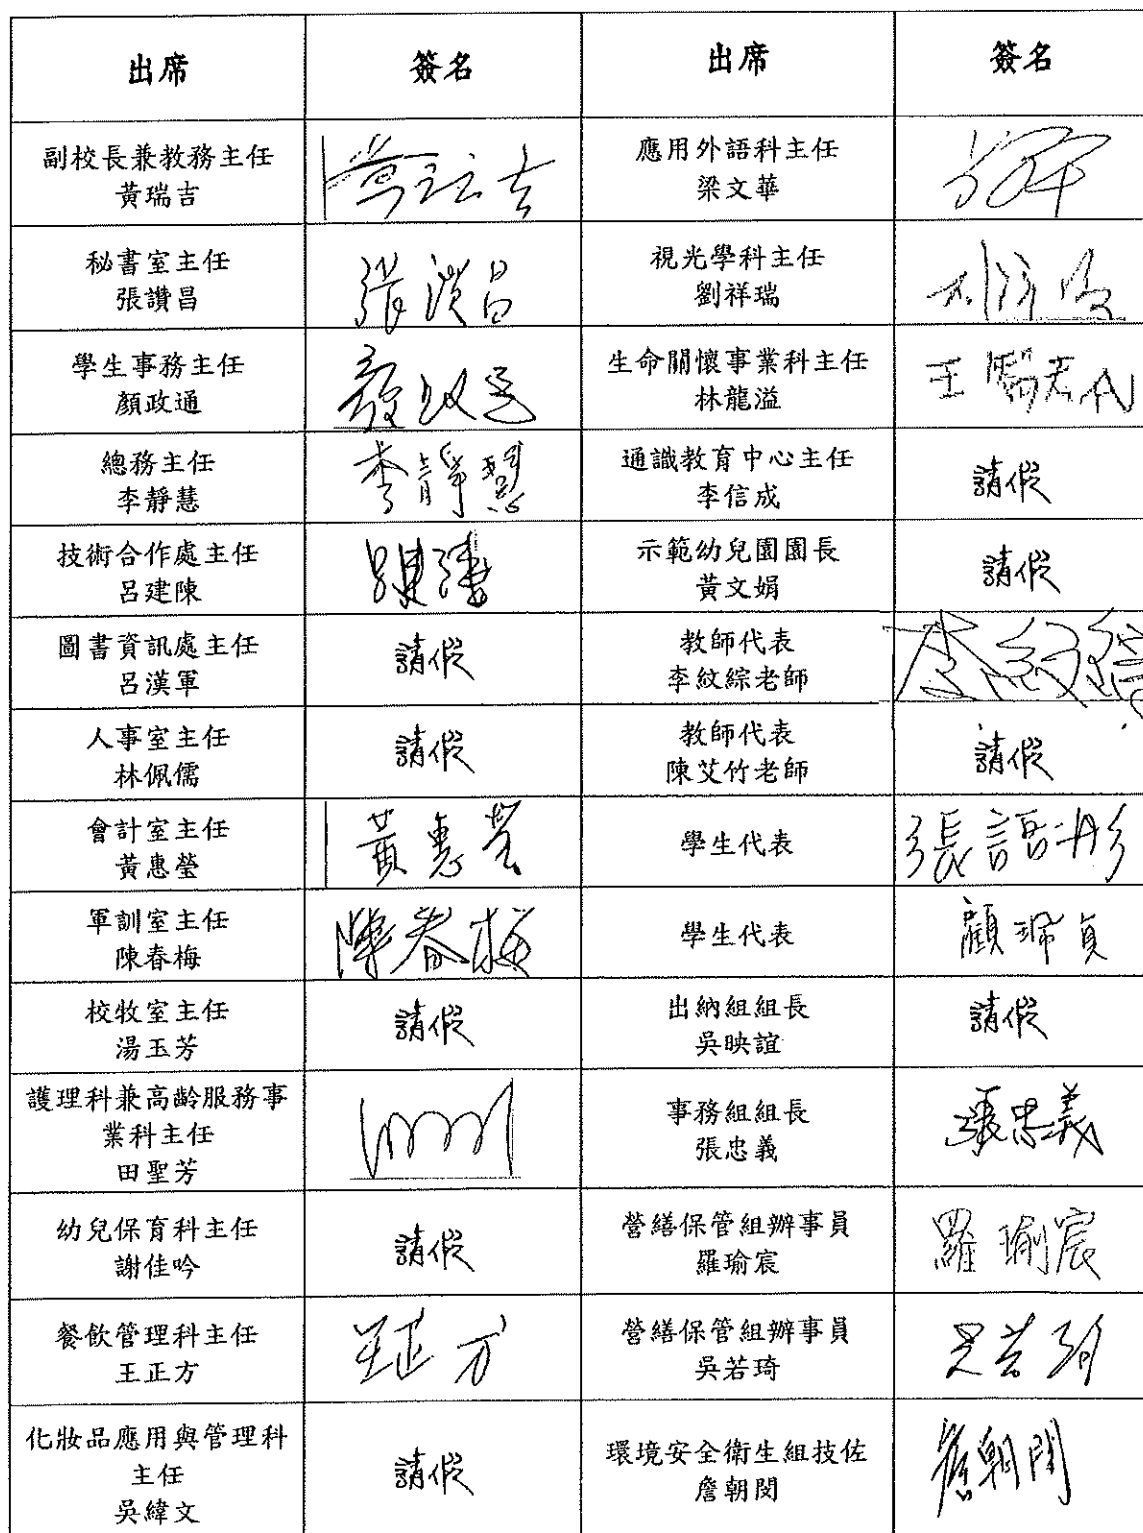 出席 簽名 出席 簽名
副校長兼教務主任
黃瑞吉
應用外語科主任
梁文華
秘書室主任
張讚昌
張讚昌
視光學科主任
劉祥瑞
學生事務主任
顏政通
顏政通
生命關懷事業科主任
林龍溢
總務主任
李靜慧
李靜慧
通識教育中心主任
李信成
請假
技術合作處主任
呂建陳
示範幼兒園園長
黃文娟
請假
圖書資訊處主任
呂漢軍
請假
教師代表
李紋綜老師
李紋綜
人事室主任
林佩儒
請假
教師代表
陳艾竹老師
請假
會計室主任
黃惠瑩
黃惠瑩
學生代表
張語彤
軍訓室主任
陳春梅
陳春梅
學生代表
校牧室主任
湯玉芳
請假
出納組組長
吳映誼
請假
護理科兼高齡服務事
業科主任
田聖芳
事務組組長
張忠義
張忠義
幼兒保育科主任
謝佳吟
請假
營繕保管組辦事員
羅瑜宸
羅瑜宸
餐飲管理科主任
王正方
王正方
營繕保管組辦事員
吳若琦
吳若琦
化妝品應用與管理科
主任
吳緯文
請假
環境安全衛生組技佐
詹朝閔
詹朝閔